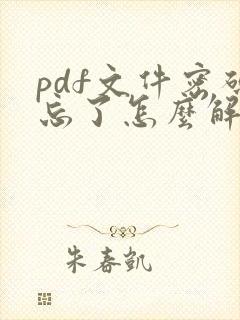 pdf文件密码
忘了怎麼解
朱春凯